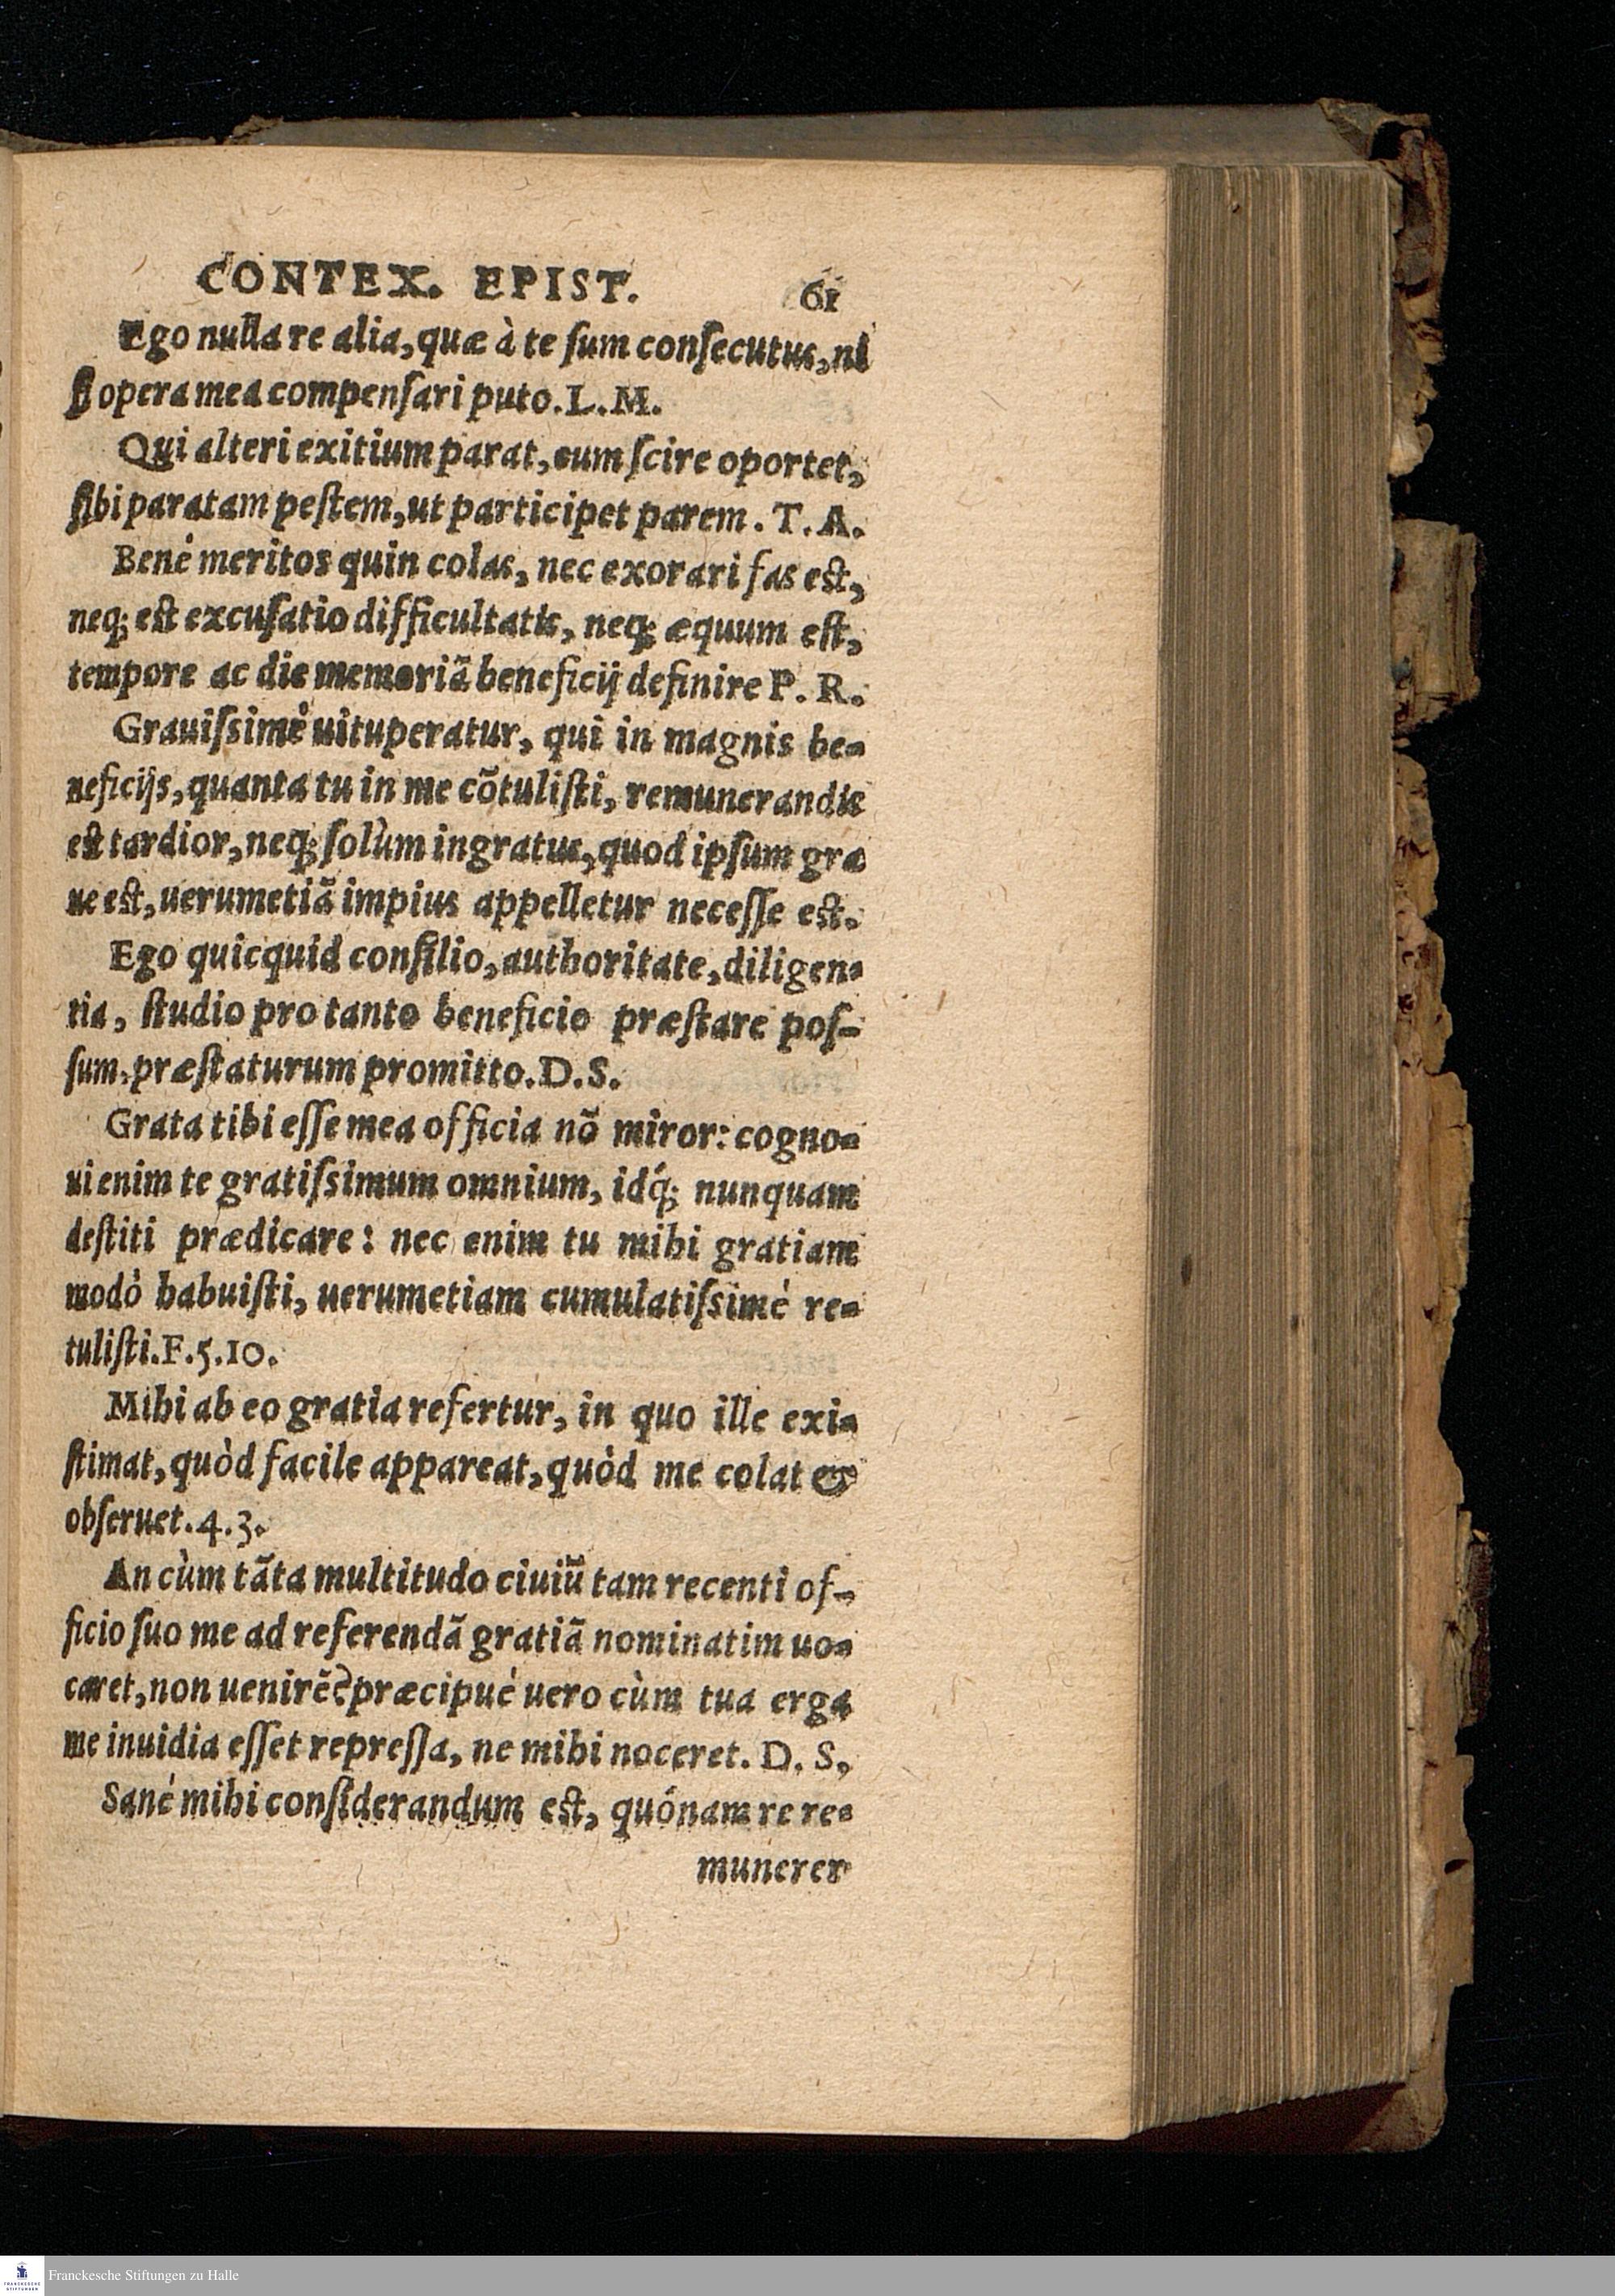 CONTEX. EPIST. 61
Ego nulla re alia, quæ à te ſum conſecutus, ni
ſi opera mea compenſari puto. L. M.
Qui alteri exitium parat, eum ſcire oportet,
ſibi paratam peſtem, ut participet parem. T. A.
Bené meritos quin colas, nec exorari fas eſt,
neq; eſt excuſatio difficultatis, neq; æquum eſt,
tempore ac die memoriã beneficij definire P. R.
Grauiſsimè uituperatur, qui in magnis be-
neficijs, quanta tu in me cõtuliſti, remunerandis
eſt tardior, neq; ſolùm ingratus, quod ipſum gra
ue eſt, uerumetiã impius appelletur neceſſe eſt.
Ego quicquid conſilio, authoritate, diligen-
tia, ſtudio pro tanto beneficio præſtare poſ-
ſum, præſtaturum promitto. D. S.
Grata tibi eſſe mea officia nõ miror: cogno-
ui enim te gratiſsimum omnium, idq́; nunquam
deſtiti prædicare: nec enim tu mihi gratiam
modò habuiſti, uerumetiam cumulatiſsimé re-
tuliſti. F. 5. 10.
Mihi ab eo gratia refertur, in quo ille exi-
ſtimat, quòd facile appareat, quòd me colat &
obſeruet. 4. 3.
An cùm tãta multitudo ciuiũ tam recenti of-
ficio ſuo me ad referendã gratiã nominatim uo-
caret, non uenirẽ? præcipué uero cùm tua erga
me inuidia eſſet repreſſa, ne mihi noceret. D. S,
Sané mihi conſiderandum eſt, quónam re re-
munerer
Franckesche Stiftungen zu Halle
FRANCKESCHE
STIFTUNGEN